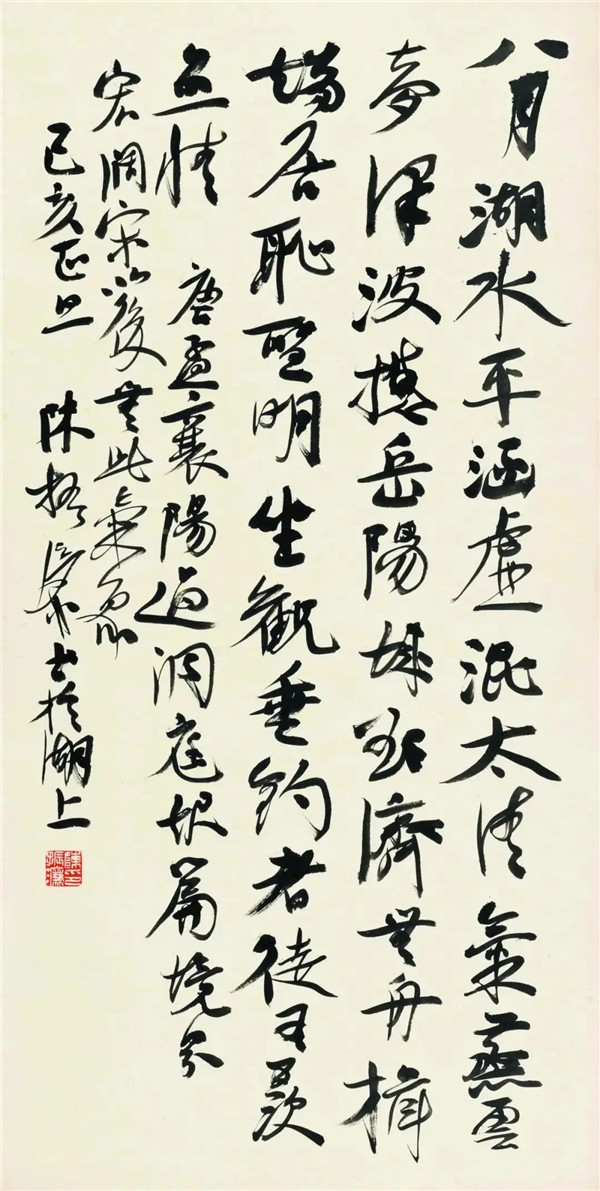 八月湖水平涵虛混太清氣蒸雲
夢澤波撼岳陽城欲濟無舟楫
端居恥聖明坐觀垂釣者徒有羨
魚情 唐孟襄陽過洞庭起篇境界
宏闊宋以後無此氣象
己亥正旦 陳振濂書於湖上
陳印振濂